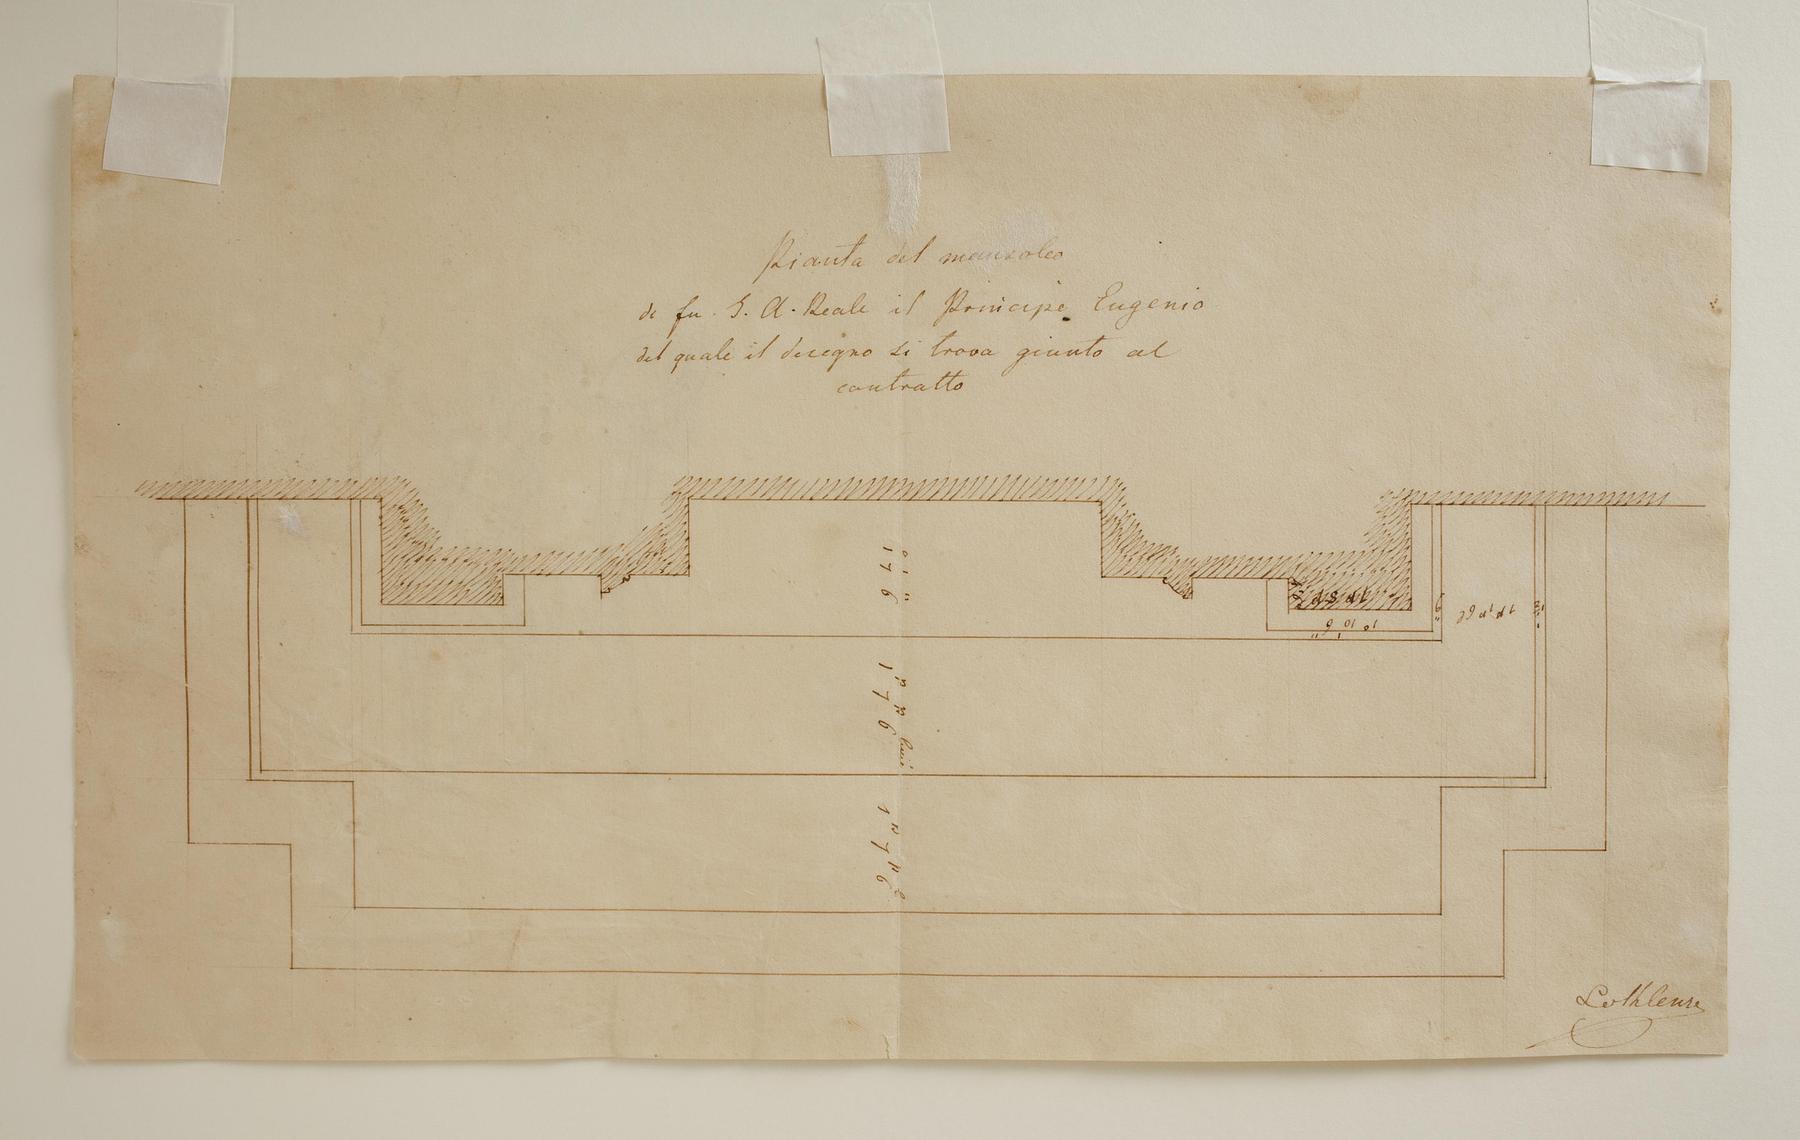 Pianta del mausoleo
di fu S. A. Reale il Principe Eugenio
del quale il disegno si trova giunto al
contratto
1 7 6
1 7 6
1 7 6